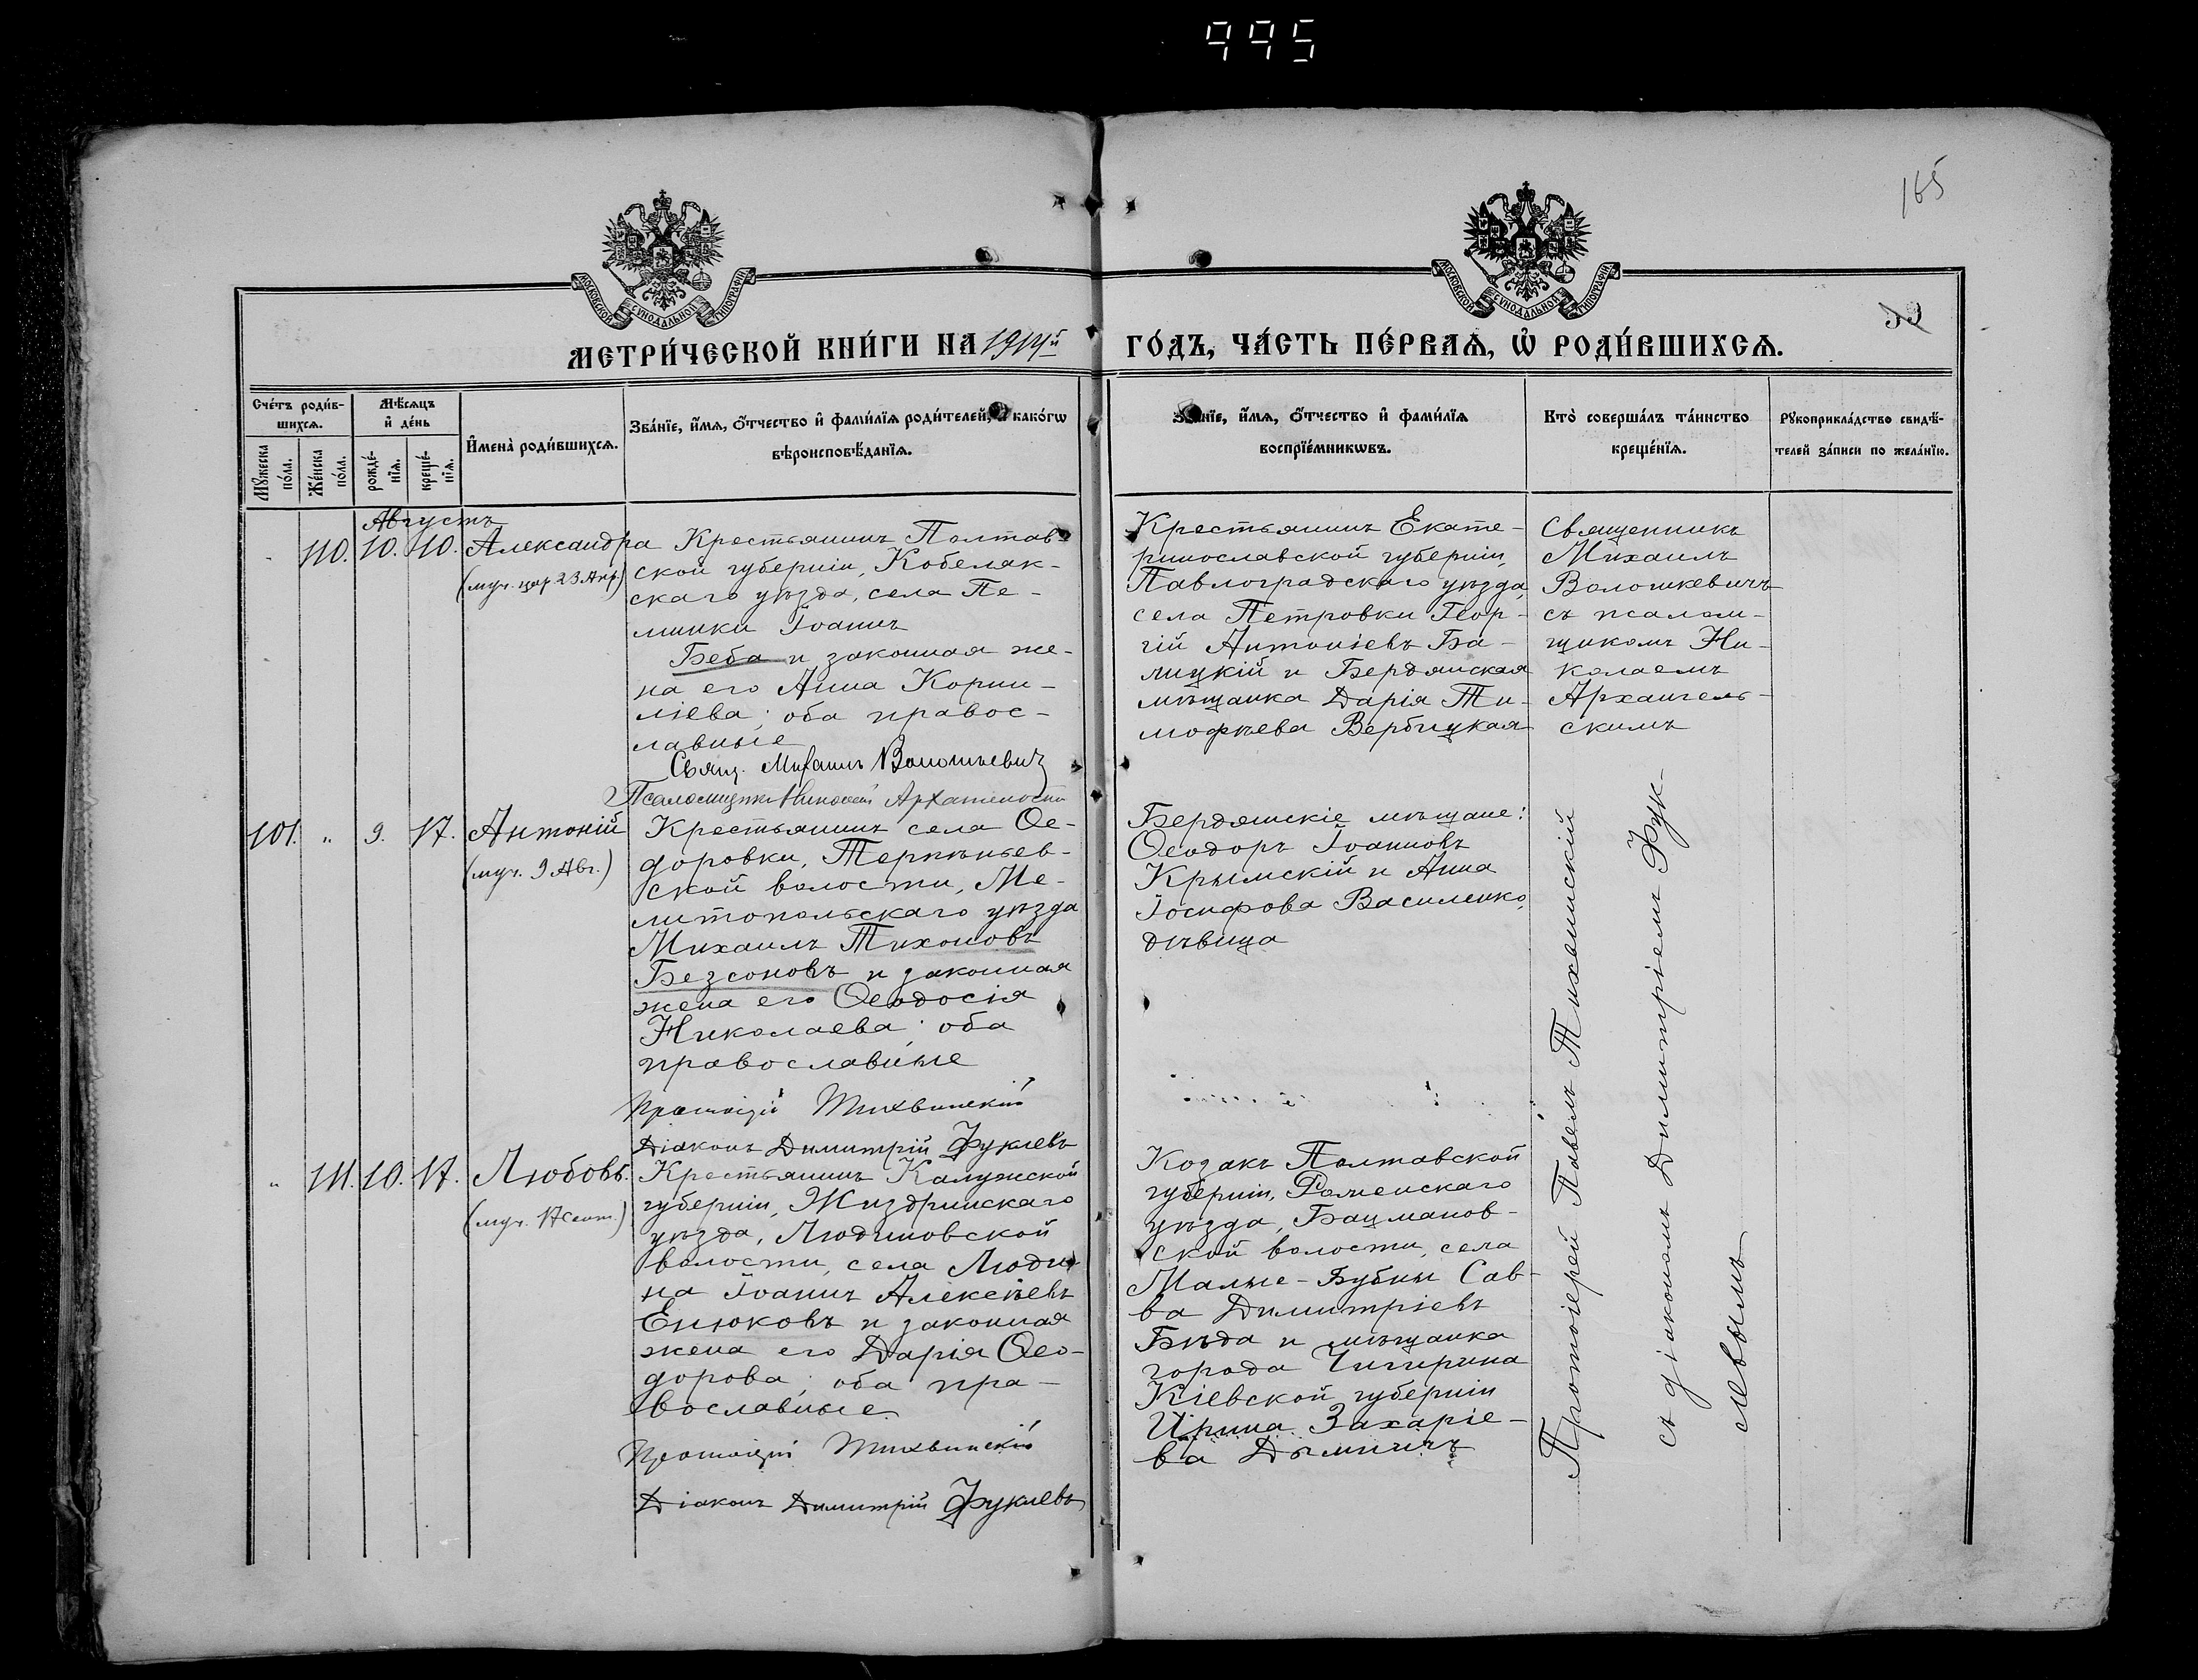 995
165
33
МОСКОВСКОЙ СѴНОДАЛЬНОЙ ТИПОГРАФІИ
МОСКОВСКОЙ СѴНОДАЛЬНОЙ ТИПОГРАФІИ
МЕТРИ́ЧЕСКОЙ КНИ́ГИ НА 1914й ГО́ДЪ, ЧА́СТЬ ПЕ́РВАѦ, Ѡ҆ РОДИ́ВШИХСѦ.
Сче́тъ роди́в-
шихсѧ.
Мꙋжеска
по́ла.
Же́нска
по́ла.
Мѣ́сѧцъ
и҆ де́нь
рожде́-
нїѧ.
креще́-
нїѧ.
И҆мена̀ роди́вшихсѧ.
Зва́нїе, и҆́мѧ, ѻ҆́тчество и҆ фамѝлїѧ роди́телей, и҆ како́гѡ
вѣроисповѣ́данїѧ.
Зва́нїе, и҆́мѧ, ѻ҆́тчество и҆ фами́лїѧ
воспрїе́мникѡвъ.
Кто̀ соверша́лъ та́инство
креще́нїѧ.
Рꙋкоприкла́дство свидѣ́-
телей за́писи по жела́нїю.
Августъ
110. 10. 10. Александра
(муч. цар 23 Апр.)
Крестьянинъ Полтав-
ской губерніи, Кобеляк-
скаго уѣзда, села Пе-
минки Іоаннъ
Беба и законная же-
на его Анна Корни-
ліева; оба правос-
лавные
Свящ. Михаилъ Волошкевичъ
Псаломщикъ Николай Архангельскій
Крестьянинъ Екате-
ринославской губерніи,
Павлоградскаго уѣзда,
села Петровки Геор-
гій Антоніевъ Ба-
лицкій и Бердянская
мѣщанка Дарія Ти-
мофѣева Вербицкая
Священникъ
Михаилъ
Волошкевичъ
съ псалом-
щикомъ Ни-
колаемъ
Архангель-
скимъ
101. " 9. 17. Антоній
(муч. 9 Авг.)
Крестьянинъ села Ѳе-
доровки, Терпѣньев-
ской волости, Ме-
литопольскаго уѣзда
Михаилъ Тихоновъ
Безсоновъ и законная
жена его Ѳеодосія
Николаева; оба
православные
Протоіерей Тихвинскій
Діаконъ Димитрій Фуклевъ
Бердянскіе мѣщане:
Ѳеодоръ Іоанновъ
Крымскій и Анна
Іосифова Василенко,
дѣвица
Протоіерей Павелъ Тихвинскій
съ діакономъ Димитріемъ Фук-
левымъ
" 111. 10. 17. Любовь.
(муч. 17 Сент.)
Крестьянинъ Калужской
губерніи, Жиздринскаго
уѣзда, Людиновской
волости, села Люди-
на Іоаннъ Алексѣевъ
Енюковъ и законная
жена его Дарія Ѳео-
дорова; оба пра-
вославные.
Протоіерей Тихвинскій
Діаконъ Димитрій Фуклевъ
Козакъ Полтавской
губерніи, Роменскаго
уѣзда, Бацманов-
ской волости, села
Малые-Бубны Сав-
ва Димитріевъ
Бѣда и мѣщанка
города Чигирина
Кіевской губерніи
Ирина Захаріе-
ва Дымничъ